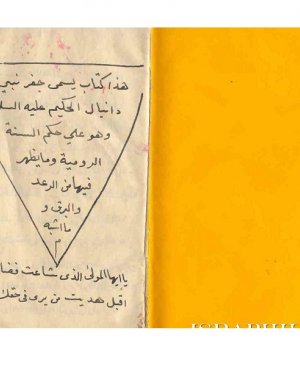 هذا كتاب يسمى جفر نبي
دانيال الحكيم عليه السلا
وهو علي حكم السنة
الرومية وما يظهر
فيها من الرعد
والبرق و
ما اشبه
م
يا ايها المولى الذى شاعت فضا
اقبل هديت من يرى فى حقك